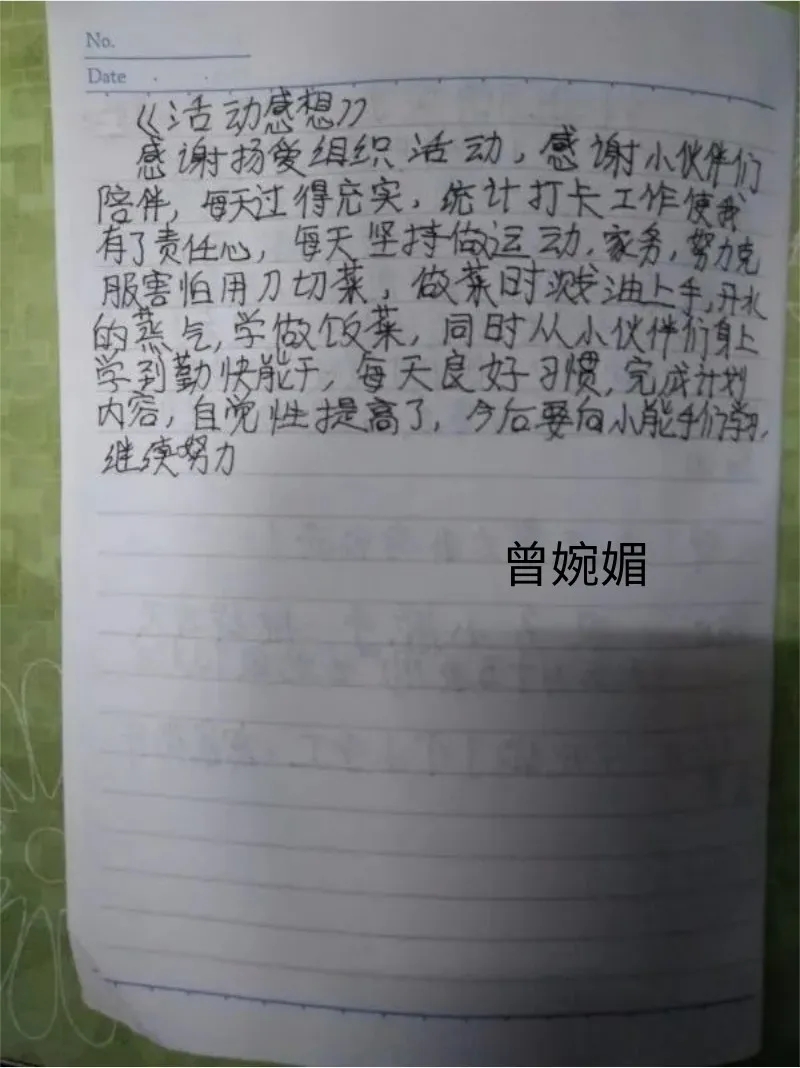 No.
Date
《活动感想》
感谢扬爱组织活动，感谢小伙伴们
陪伴，每天过得充实，统计打卡工作使我
有了责任心，每天坚持做运动，家务，努力克
服害怕用刀切菜，做菜时溅油上手，开水
的蒸气，学做饭菜，同时从小伙伴们身上
学到勤快能干，每天良好习惯，完成计划
内容，自觉性提高了，今后要向小能手们学习，
继续努力
曾婉媚